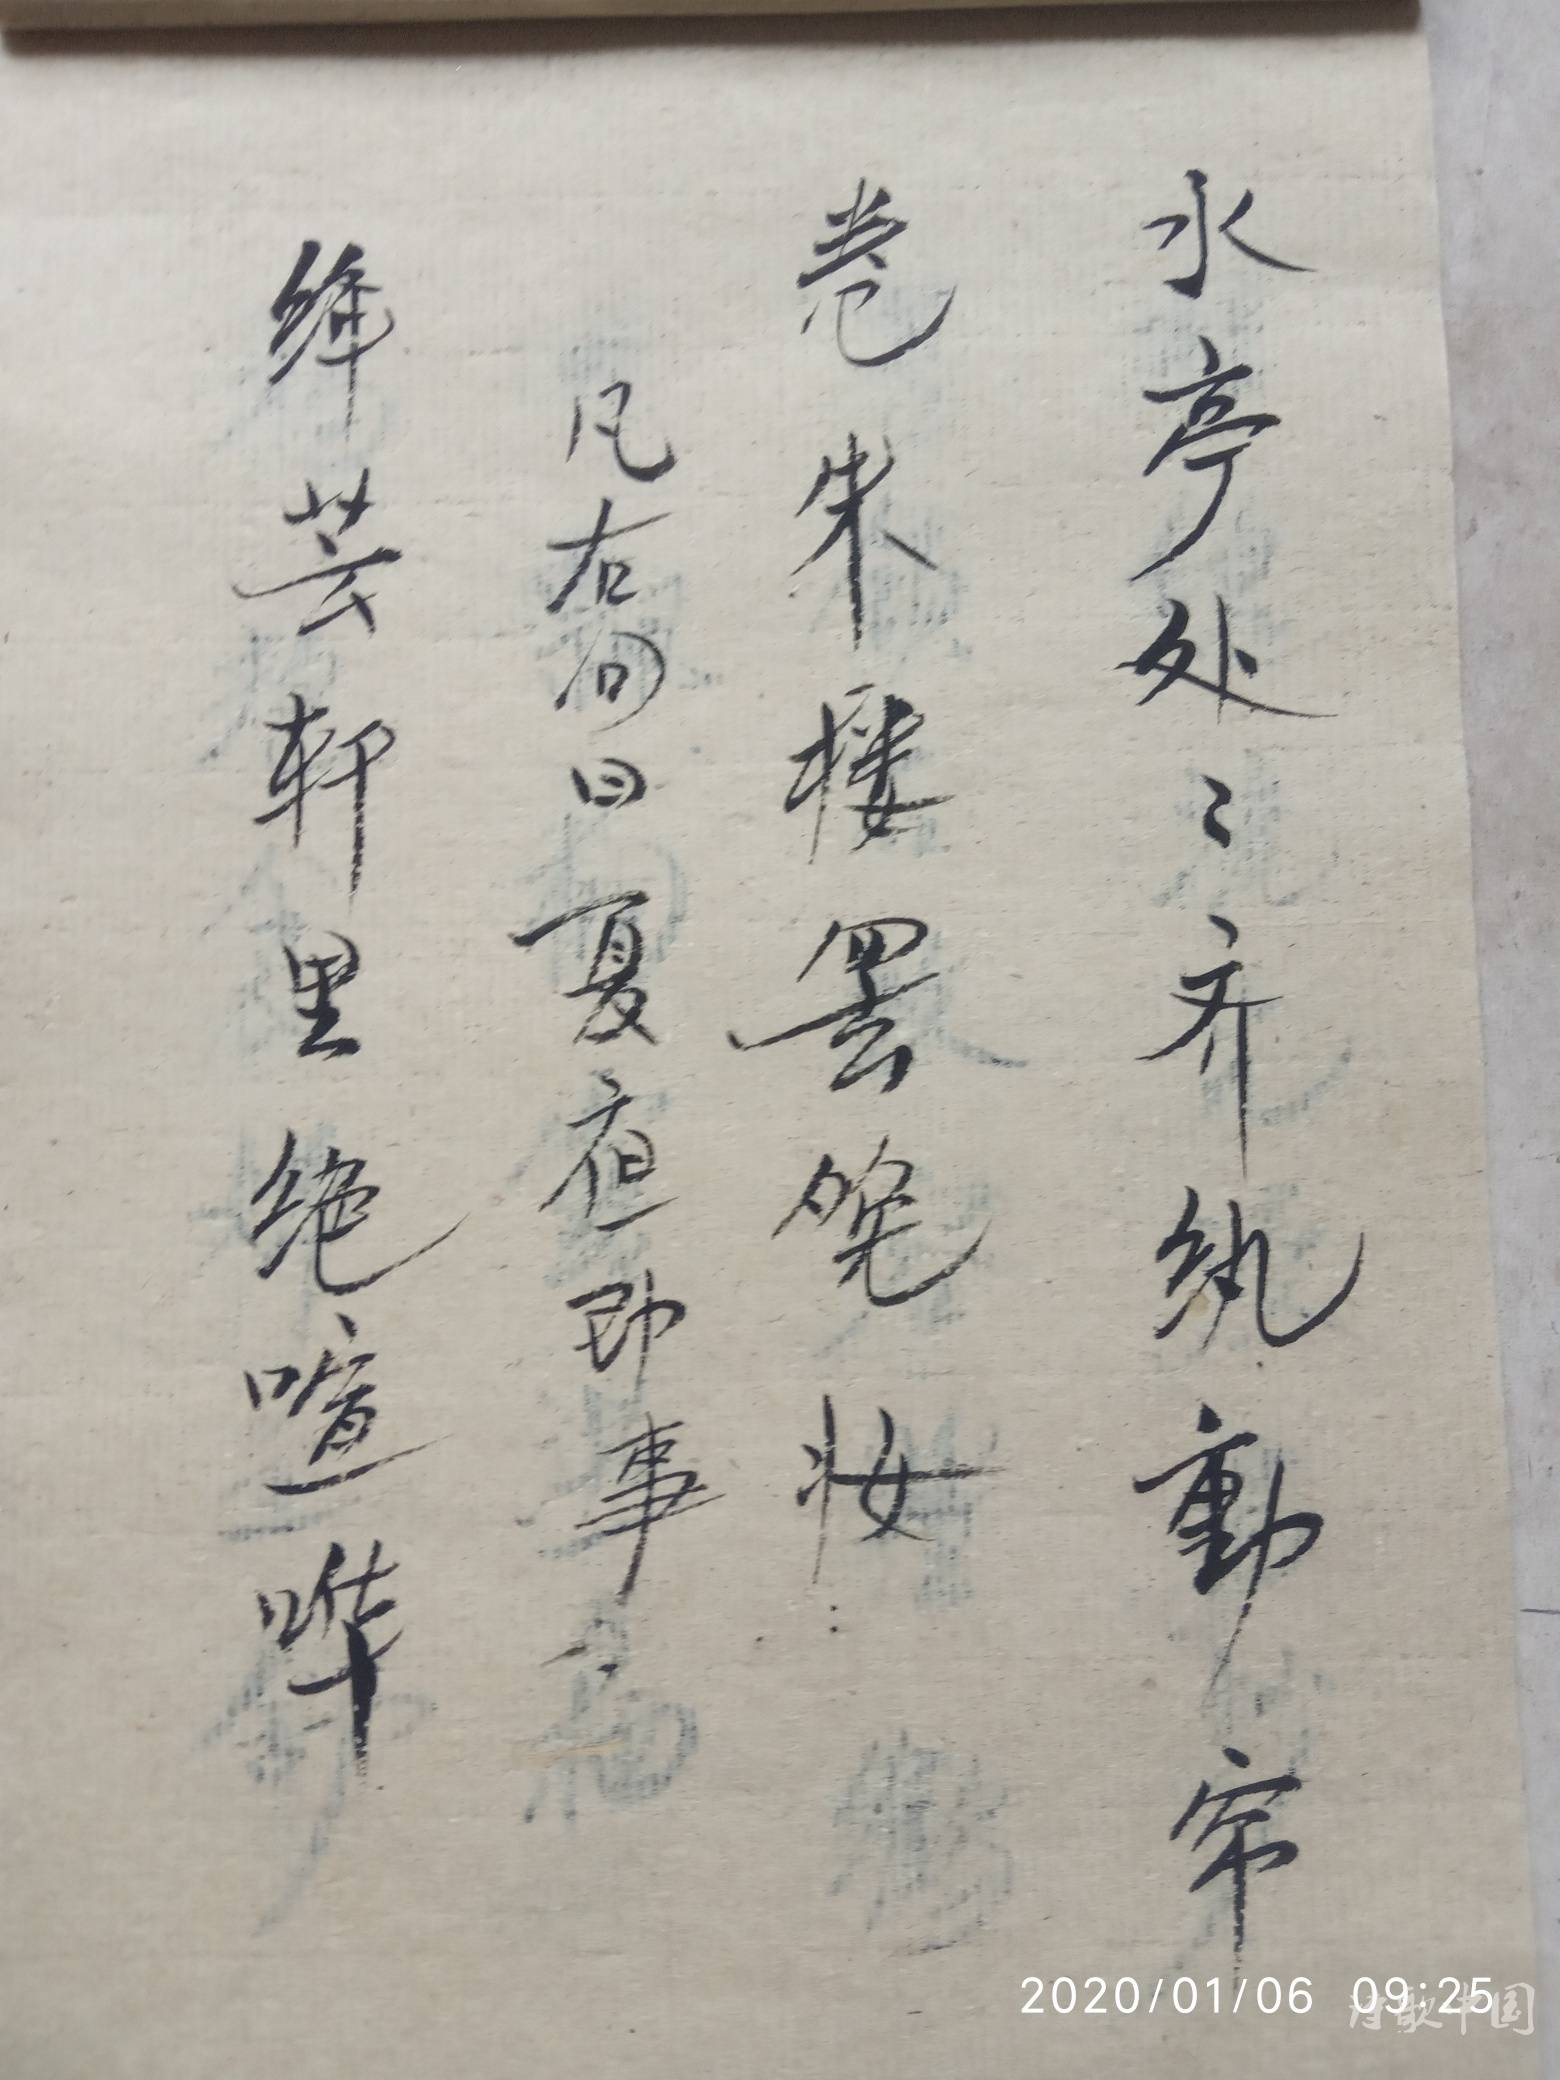 水亭处〻齐纨動帘
卷朱楼罢晚妆
凡右句曰夏夜即事
绛芸轩里绝喧哗
2020/01/06 09:25
诗歌中国